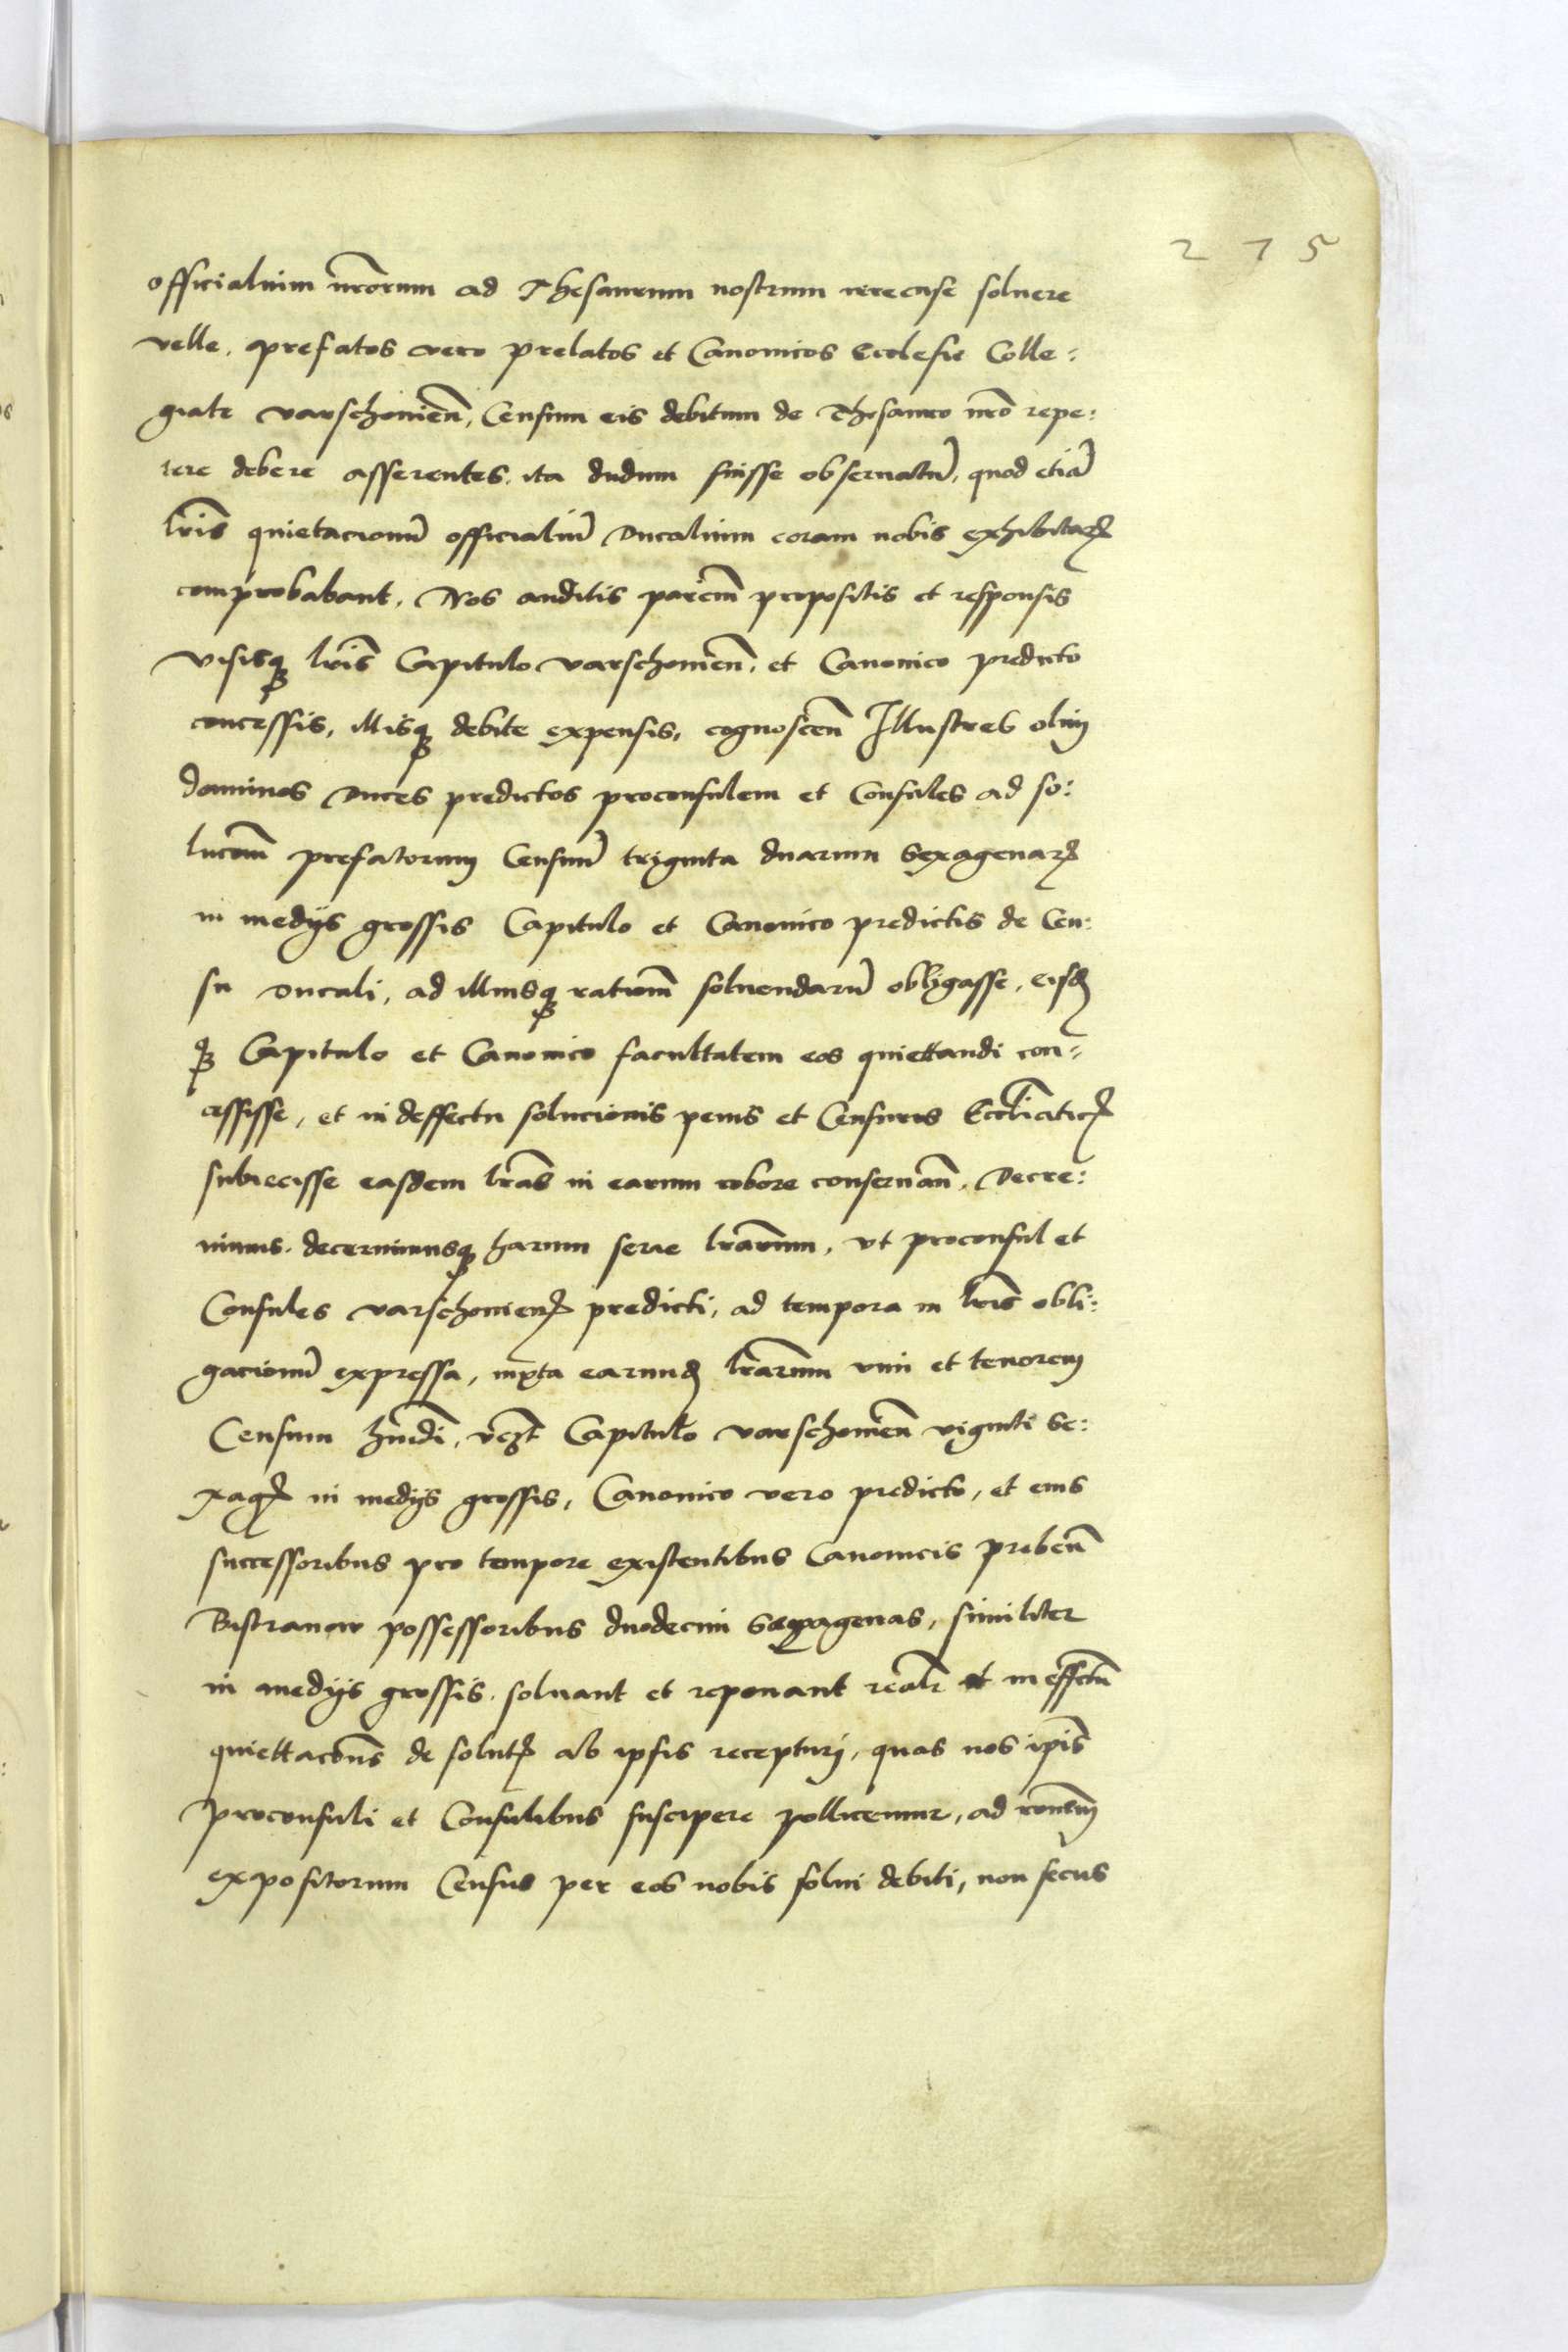 275
officialium nr̃orum ad Thesaurum nostrum recense soluere
velle. prefatos vero prelatos et Canonicos Ecclesie Colle:
giate varschouien̄, Censum eis debitum de Thesauro nr̃o repe:
tere debere asserentes. ita dudum fuisse obseruatū, quod etiā
lr̃is quietacionū officialiū Ducalium coram nobis exhibitaꝝ
comprobabant. Nos auditis parciū propositis et responsis
visisqꝫ lr̃is Capitulo varschouien̄, et Canonico predicto
concessis, illisqꝫ debite expensis, cognoscen̄ Illustres olim
dominos Duces predictos proconsulem et Consules ad so:
lucōm prefatorum Censuū triginta duarum Sexagenaꝝ
in medijs grossis Capitulo et Canonico predictis de Cen:
su ducali, ad illiusqꝫ rationem soluendarū obligasse, eisdem
qꝫ Capitulo et Canonico facultatem eos quiettandi con:
cessisse, et in deffectu solucionis penis et Censuris Eccl̃iaticꝭ
subiecisse easdem lr̃as in earum robore conseruan̄. Decre:
uimus. decernimusqꝫ harum serie lr̃arum, vt proconsul et
Consules varschouienꝭ predicti, ad tempora in lr̃is obli:
gacionū expressa, iuxta earundem lr̃arum vim et tenorem
Censum hm̄di, vꝫt Capitulo varschouien̄ viginti Se:
xagꝭ in medijs grossis, Canonico vero predicto, et eius
successoribus pro tempore existentibus Canonicis preben̄
Bistranow possessoribus duodecim Sexagenas, similiter
in medijs grossis. soluant et reponant realr̃ et in effectū
quiettacōns de solutꝭ ab ipsis recepturi, quas nos ip̄is
proconsuli et Consulibus suscipere pollicemur, ad rōnem
expositorum Census per eos nobis solui debiti, non secus